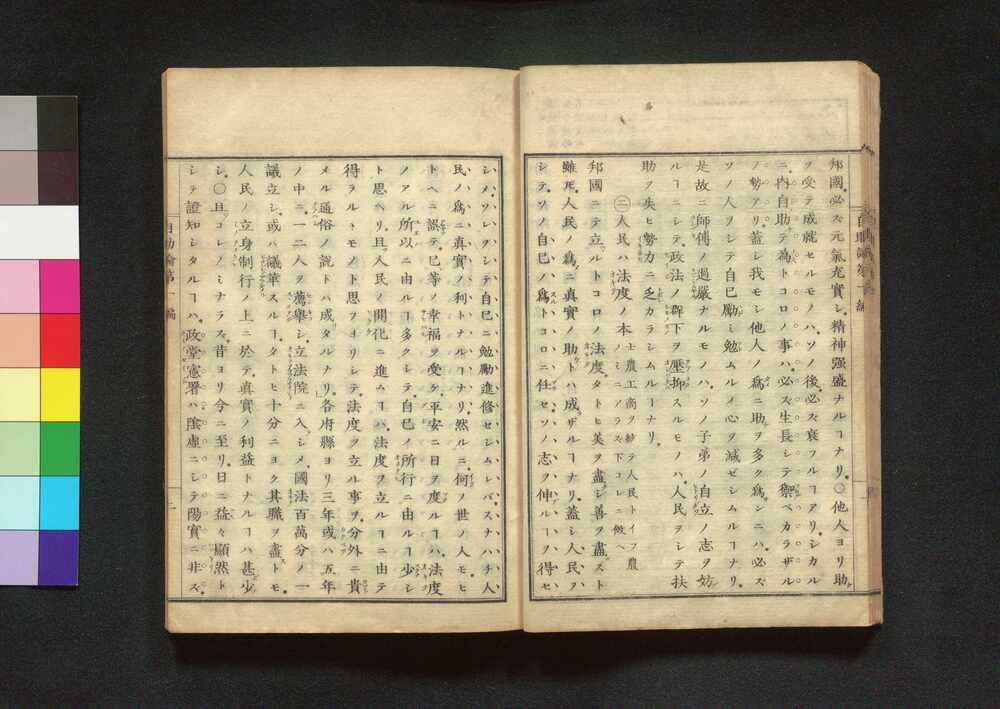 邦國必ズ元氣充實シ精神强盛ナルヿナリ。○他人ヨリ助
ヲ受テ成就セルモノハ。ソノ後必ズ衰フルヿアリ。シカル
ニ内自助テ爲トコロノ事ハ。必ズ生長シテ禦ベカラザル
ノ勢アリ。蓋シ我モシ他人ノ爲ニ助ヲ多ク爲シニハ。必ズ
ソノ人ヲシテ自己勵ミ勉ムルノ心ヲ減ゼシムルヿナリ。
是故ニ師傅ノ過嚴ナルモノハ。ソノ子弟ノ自立ノ志ヲ妨
ルヿニシテ。政法ノ群下ヲ壓抑スルモノハ。人民ヲシテ扶
助ヲ失ヒ勢力ニ乏カラシムルヿナリ。
㊁人民ハ法度ノ本 士農工商ヲ紗テ人民トイフ農ノミニアラズ下コレニ倣ヘ
邦國ニテ立ルトコロノ法度。タトヒ美ヲ盡シ善ヲ盡ストモ
雖𪜈。人民ノ爲ニ真實ノ助トハ成ザルヿナリ。蓋シ人民ヲ
シテ。ソノ自己ノ爲トコロニ任セ。ソノ志ヲ伸ルヿヲ得セ
シハ。ソレヲシテ自己ニ勉勵進修セシムレバ。スナハチ人
民ノ爲ニ真實ノ利トナルヿナリ。然ルニ。何ノ世ノ人モヒ
トヘニ誤テ。己等ノ幸福ヲ受ケ。平安ニ日ヲ度ルヿハ。法度
ノアル所以ニ由ルヿ多クシテ。自己ノ所行ニ由ルヿ少シ
ト思ヘリ。且人民ノ開化ニ進ムヿハ。法度ヲ立ルヿニ由テ
得ラルヽモノト思フヨリシテ。法度ヲ立ル事ヲ。分外ニ貴
メル通俗ノ説トハ成タルナリ。各府縣ヨリ三年或ハ五年
ノ中ニ。一二人ヲ薦擧シ。立法院ニ入シメ。國法百萬分ノ一
議立シ。或ハ議革スルヿ。タトヒ十分ニヨク其職ヲ盡トモ。
人民ノ立身制行ノ上ニ於テ。真實ノ利益トナルヿハ甚少
シ。○且コレノミナラズ。昔ヨリ今ニ至リ。日ニ益々顯然ト
シテ證知シタルヿハ。政堂憲署ハ陰虛ニシテ陽實ニ非ズ。
自助論第一編
二